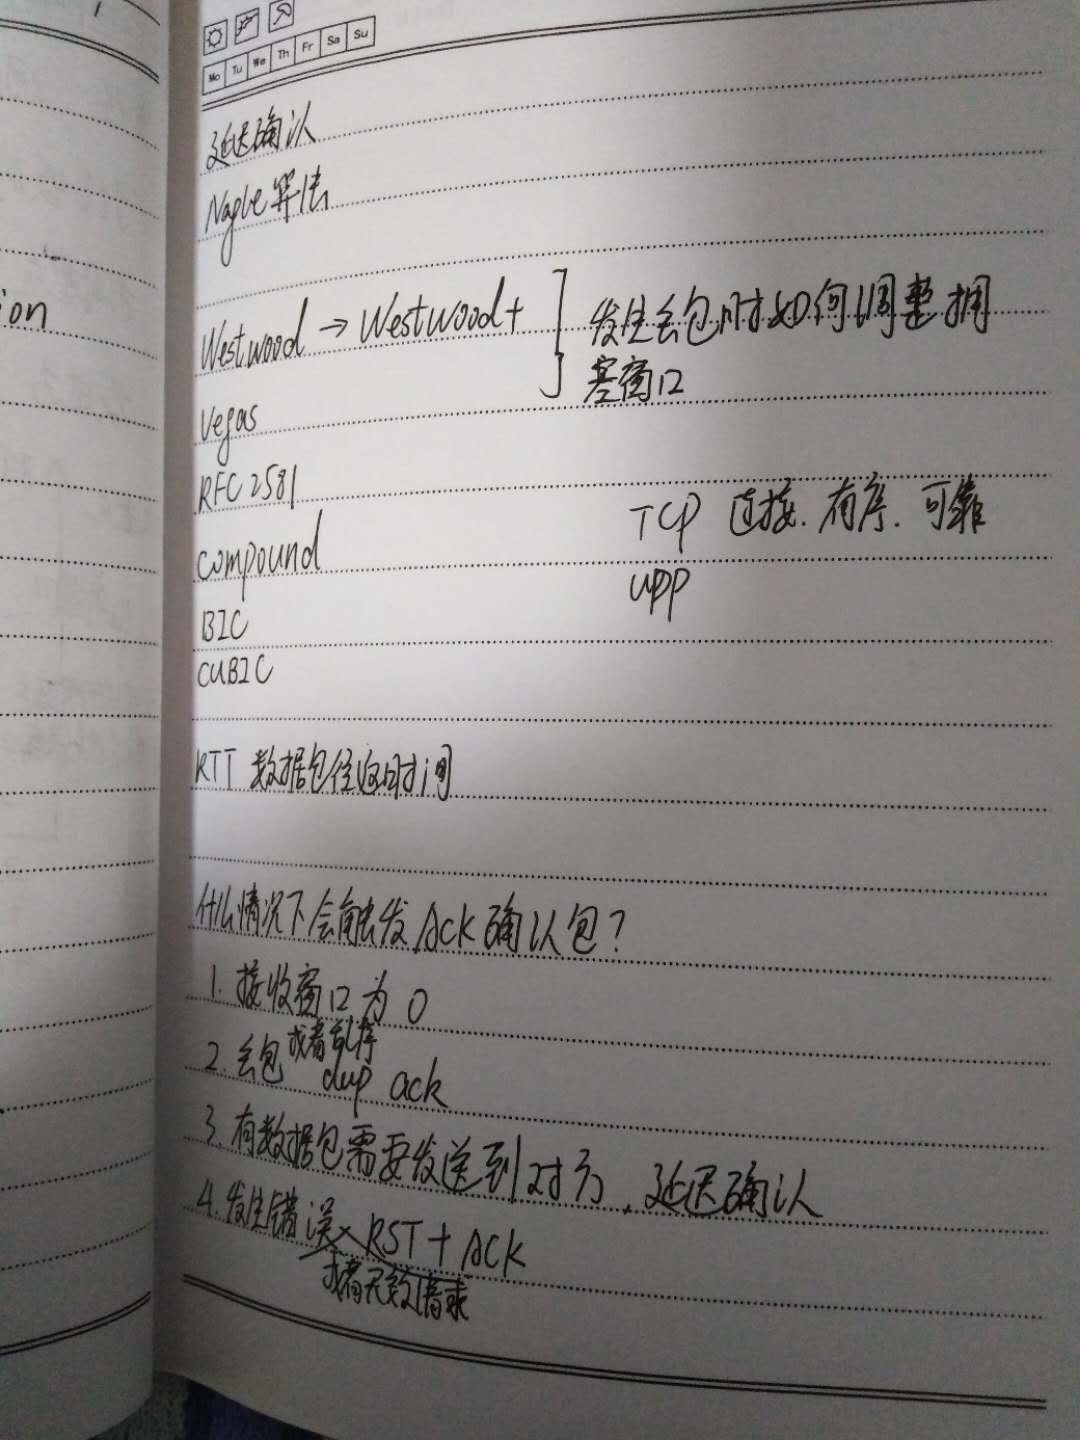 Mo Tu We Th Fr Sa Su
延迟确认
Nagle算法
ion
Westwood → Westwood+
发生丢包时如何调整拥
塞窗口
Vegas
RFC 2581
TCP 连接、有序、可靠
compound
UDP
BIC
CUBIC
RTT 数据包往返时间
什么情况下会触发ACK确认包?
1. 接收窗口为 0
2. 丢包或者乱序
dup ack
3. 有数据包需要发送到对方,延迟确认
4. 发生错误 RST + ACK
或者无效请求